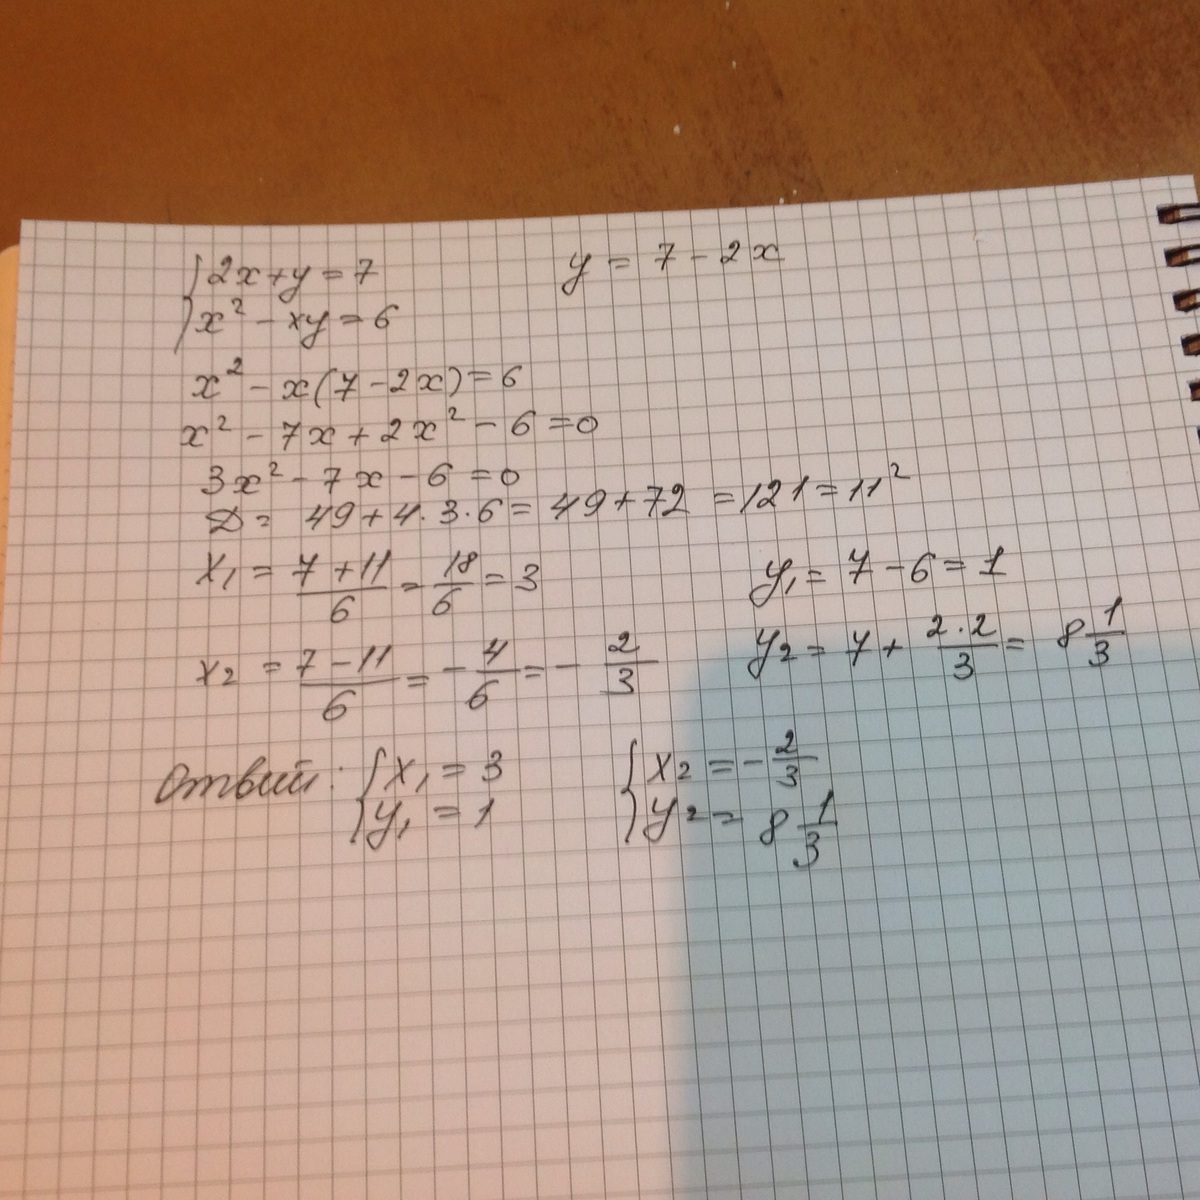 {2x+y=7   y = 7 - 2x
{x² - xy = 6
x² - x(7 - 2x) = 6
x² - 7x + 2x² - 6 = 0
3x² - 7x - 6 = 0
D = 49 + 4·3·6 = 49 + 72 = 121 = 11²
x₁ = (7 + 11)/6 = 18/6 = 3   y₁ = 7 - 6 = 1
x₂ = (7 - 11)/6 = -4/6 = -2/3   y₂ = 7 + (2·2)/3 = 8 1/3
Ответ: {x₁ = 3   {x₂ = -2/3
{y₁ = 1   {y₂ = 8 1/3